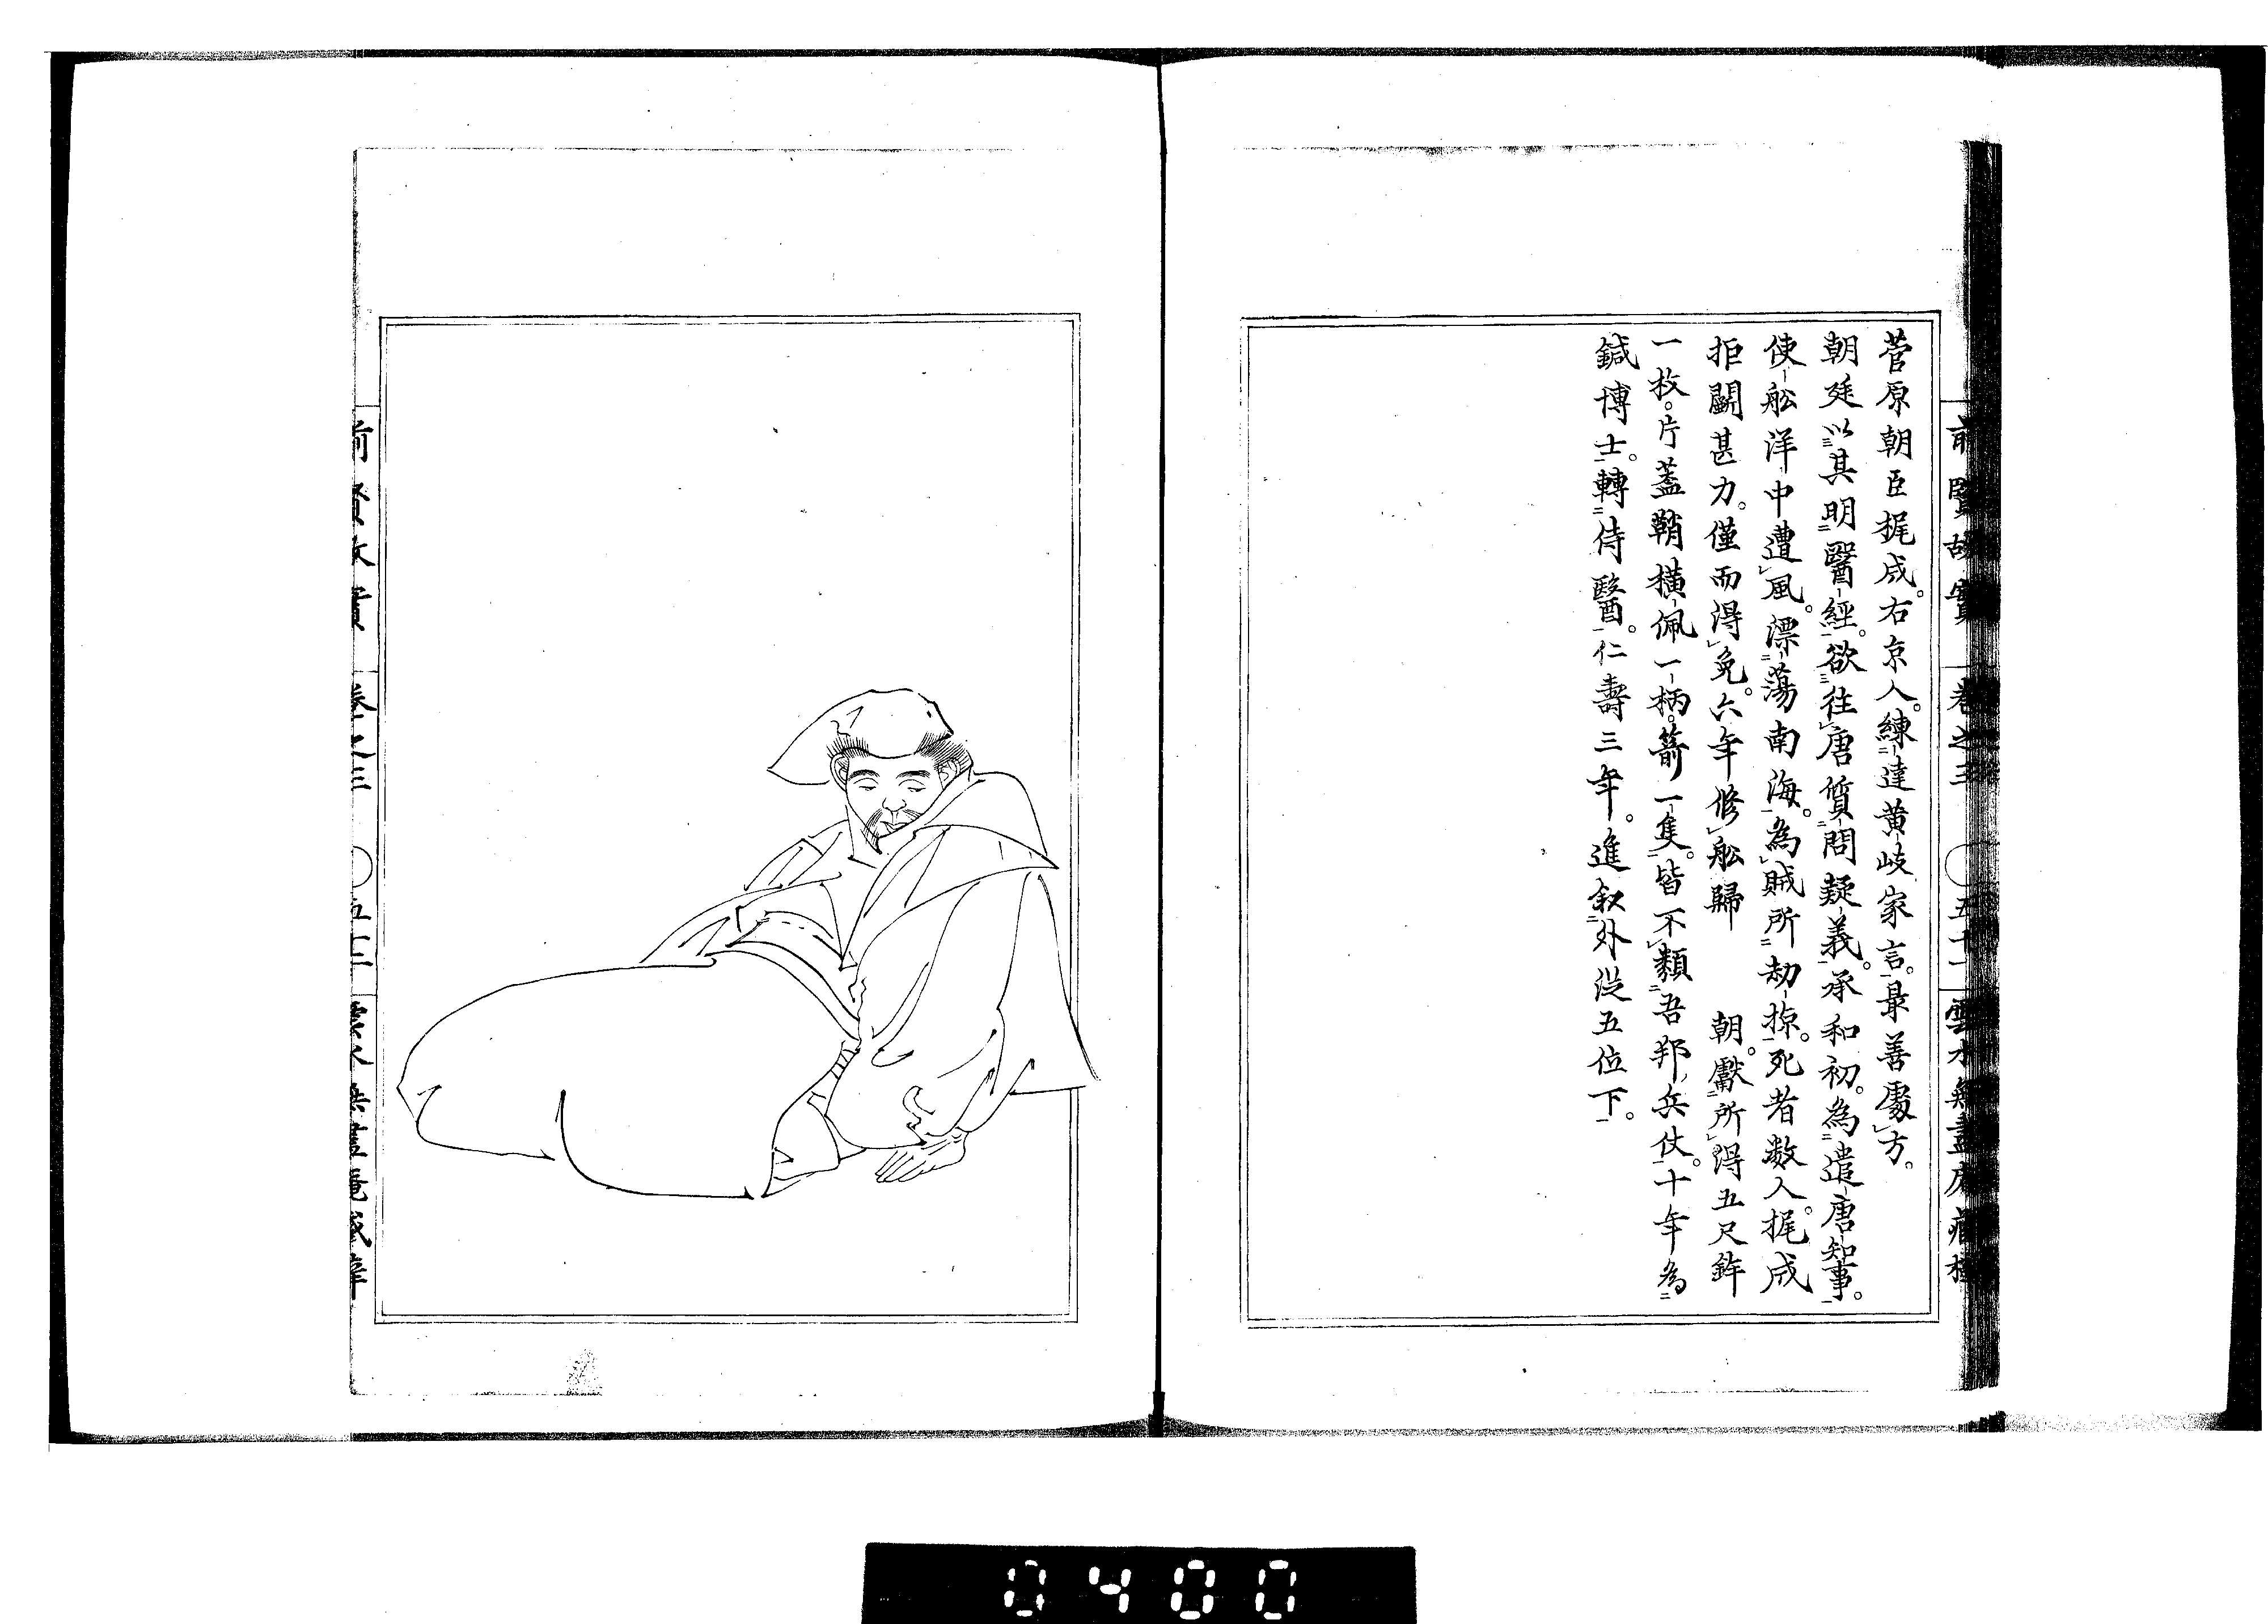 前賢故實　巻之三　〇五十一　雲水無盡庵藏
菅原朝臣梶成。右京人。練達黄岐家言。最善處方。
朝廷以其明醫經。欲往唐質問疑義。承和初。為遣唐知事。
使舩洋中遭風。漂蕩南海。為賊所劫掠。死者数人。梶成
拒鬭甚力。僅而得免。六年修舩歸　朝。獻所得五尺鉾
一枚。片蓋鞘横佩一柄。箭一隻。皆不類吾邦兵仗。十年為
鍼博士。轉侍醫。仁壽三年。進叙外從五位下。
前　巻之三　〇五十二
0400